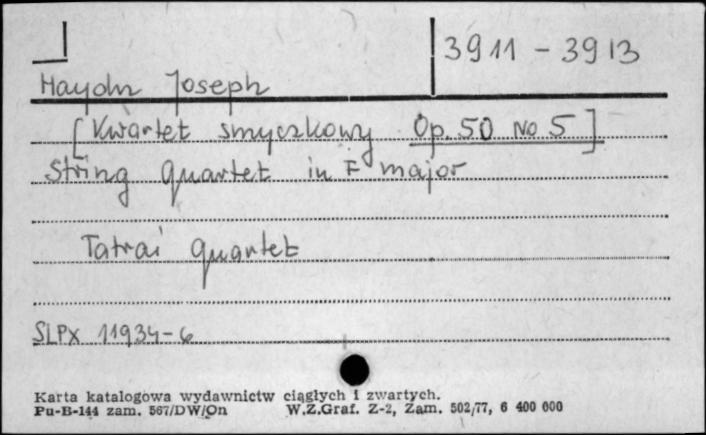 3911 - 3913
Haydn Joseph
[Kwartet smyczkowy Op. 50 No 5]
String quartet in F major
Tatrai quartet
SLPX 11934-6
Karta katalogowa wydawnictw ciągłych i zwartych.
Pu-B-144 zam. 567/DW/On W.Z.Graf. Z-2, Zam. 502/77, 6 400 000